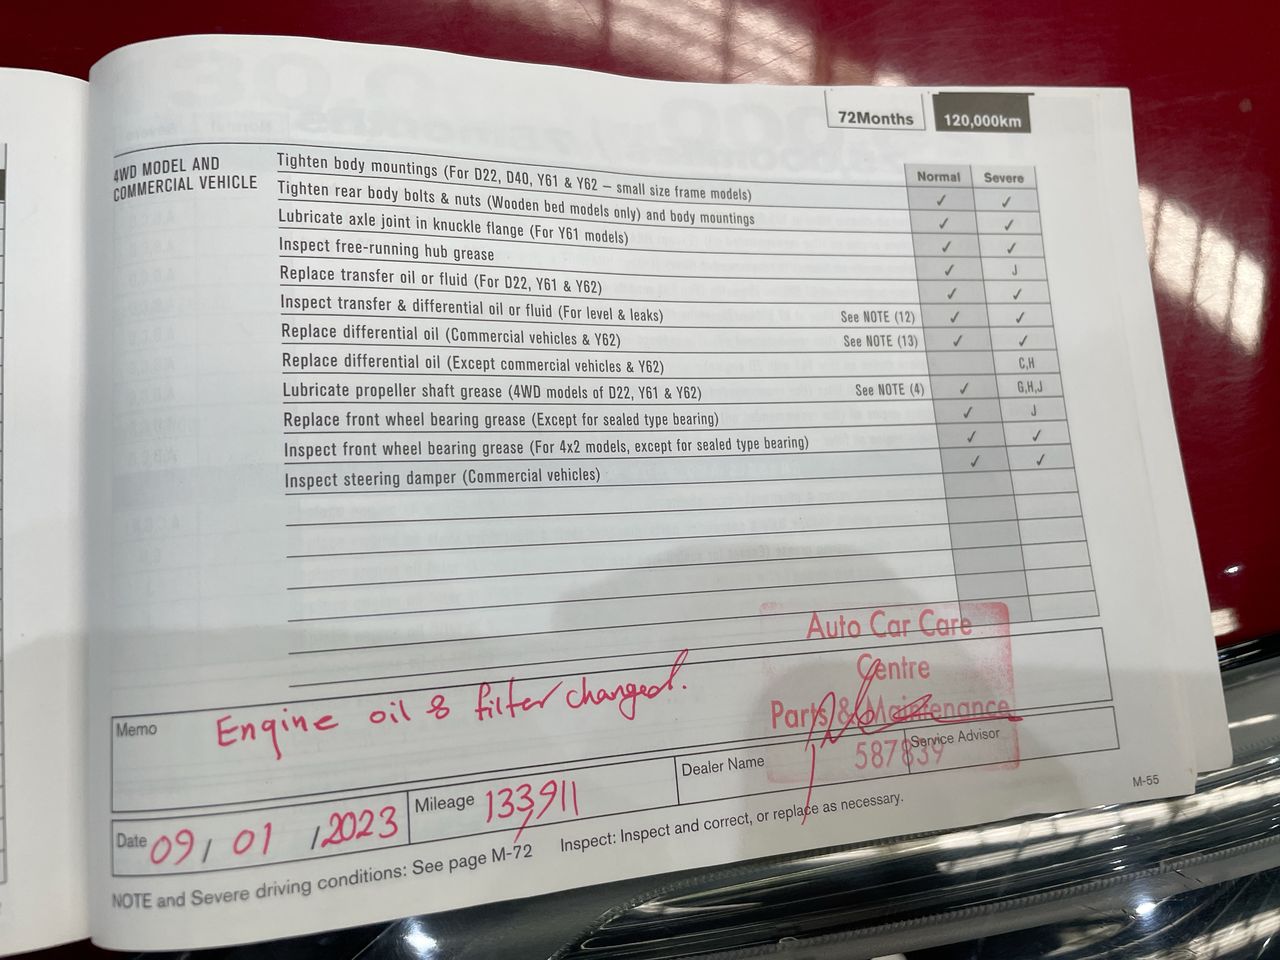 72Months 120,000km
4WD MODEL AND
COMMERCIAL VEHICLE
Normal Severe
Tighten body mountings (For D22, D40, Y61 & Y62 – small size frame models) ✓ ✓
Tighten rear body bolts & nuts (Wooden bed models only) and body mountings ✓ ✓
Lubricate axle joint in knuckle flange (For Y61 models) ✓ ✓
Inspect free-running hub grease ✓ J
Replace transfer oil or fluid (For D22, Y61 & Y62) ✓ ✓
Inspect transfer & differential oil or fluid (For level & leaks) See NOTE (12) ✓ ✓
Replace differential oil (Commercial vehicles & Y62) See NOTE (13) ✓ ✓
Replace differential oil (Except commercial vehicles & Y62) C,H
Lubricate propeller shaft grease (4WD models of D22, Y61 & Y62) See NOTE (4) ✓ G,H,J
Replace front wheel bearing grease (Except for sealed type bearing) ✓ J
Inspect front wheel bearing grease (For 4x2 models, except for sealed type bearing) ✓ ✓
Inspect steering damper (Commercial vehicles) ✓ ✓
Auto Car Care
Centre
Parts & Maintenance
587839
Memo Engine oil & filter changed.
Date 09/01/2023 Mileage 133,911 Dealer Name Service Advisor
NOTE and Severe driving conditions: See page M-72 Inspect: Inspect and correct, or replace as necessary.
M-55